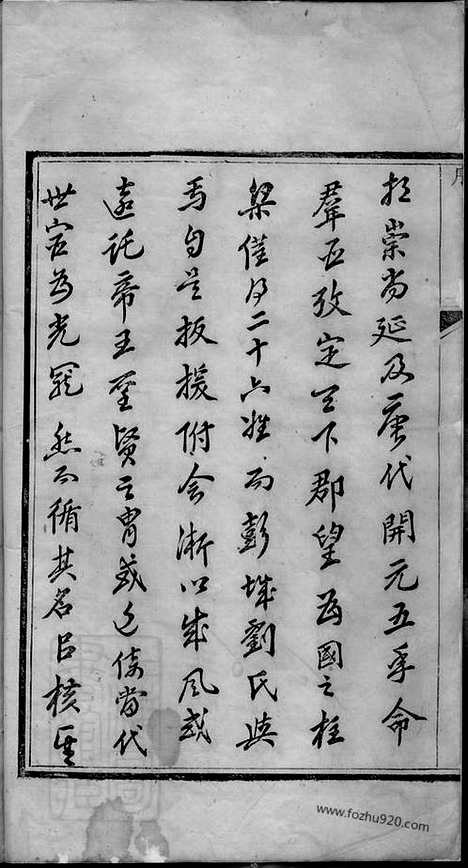 相崇尚延及唐代開元五年命
羣臣攷定天下郡望為國之柱
梁僅得二十六姓而彭城劉氏與
焉自是扳援附會漸以成風或
遠託帝王聖賢之胄或近倚當代
世宦為光寵然而循其名以核其
www.fozhu920.com